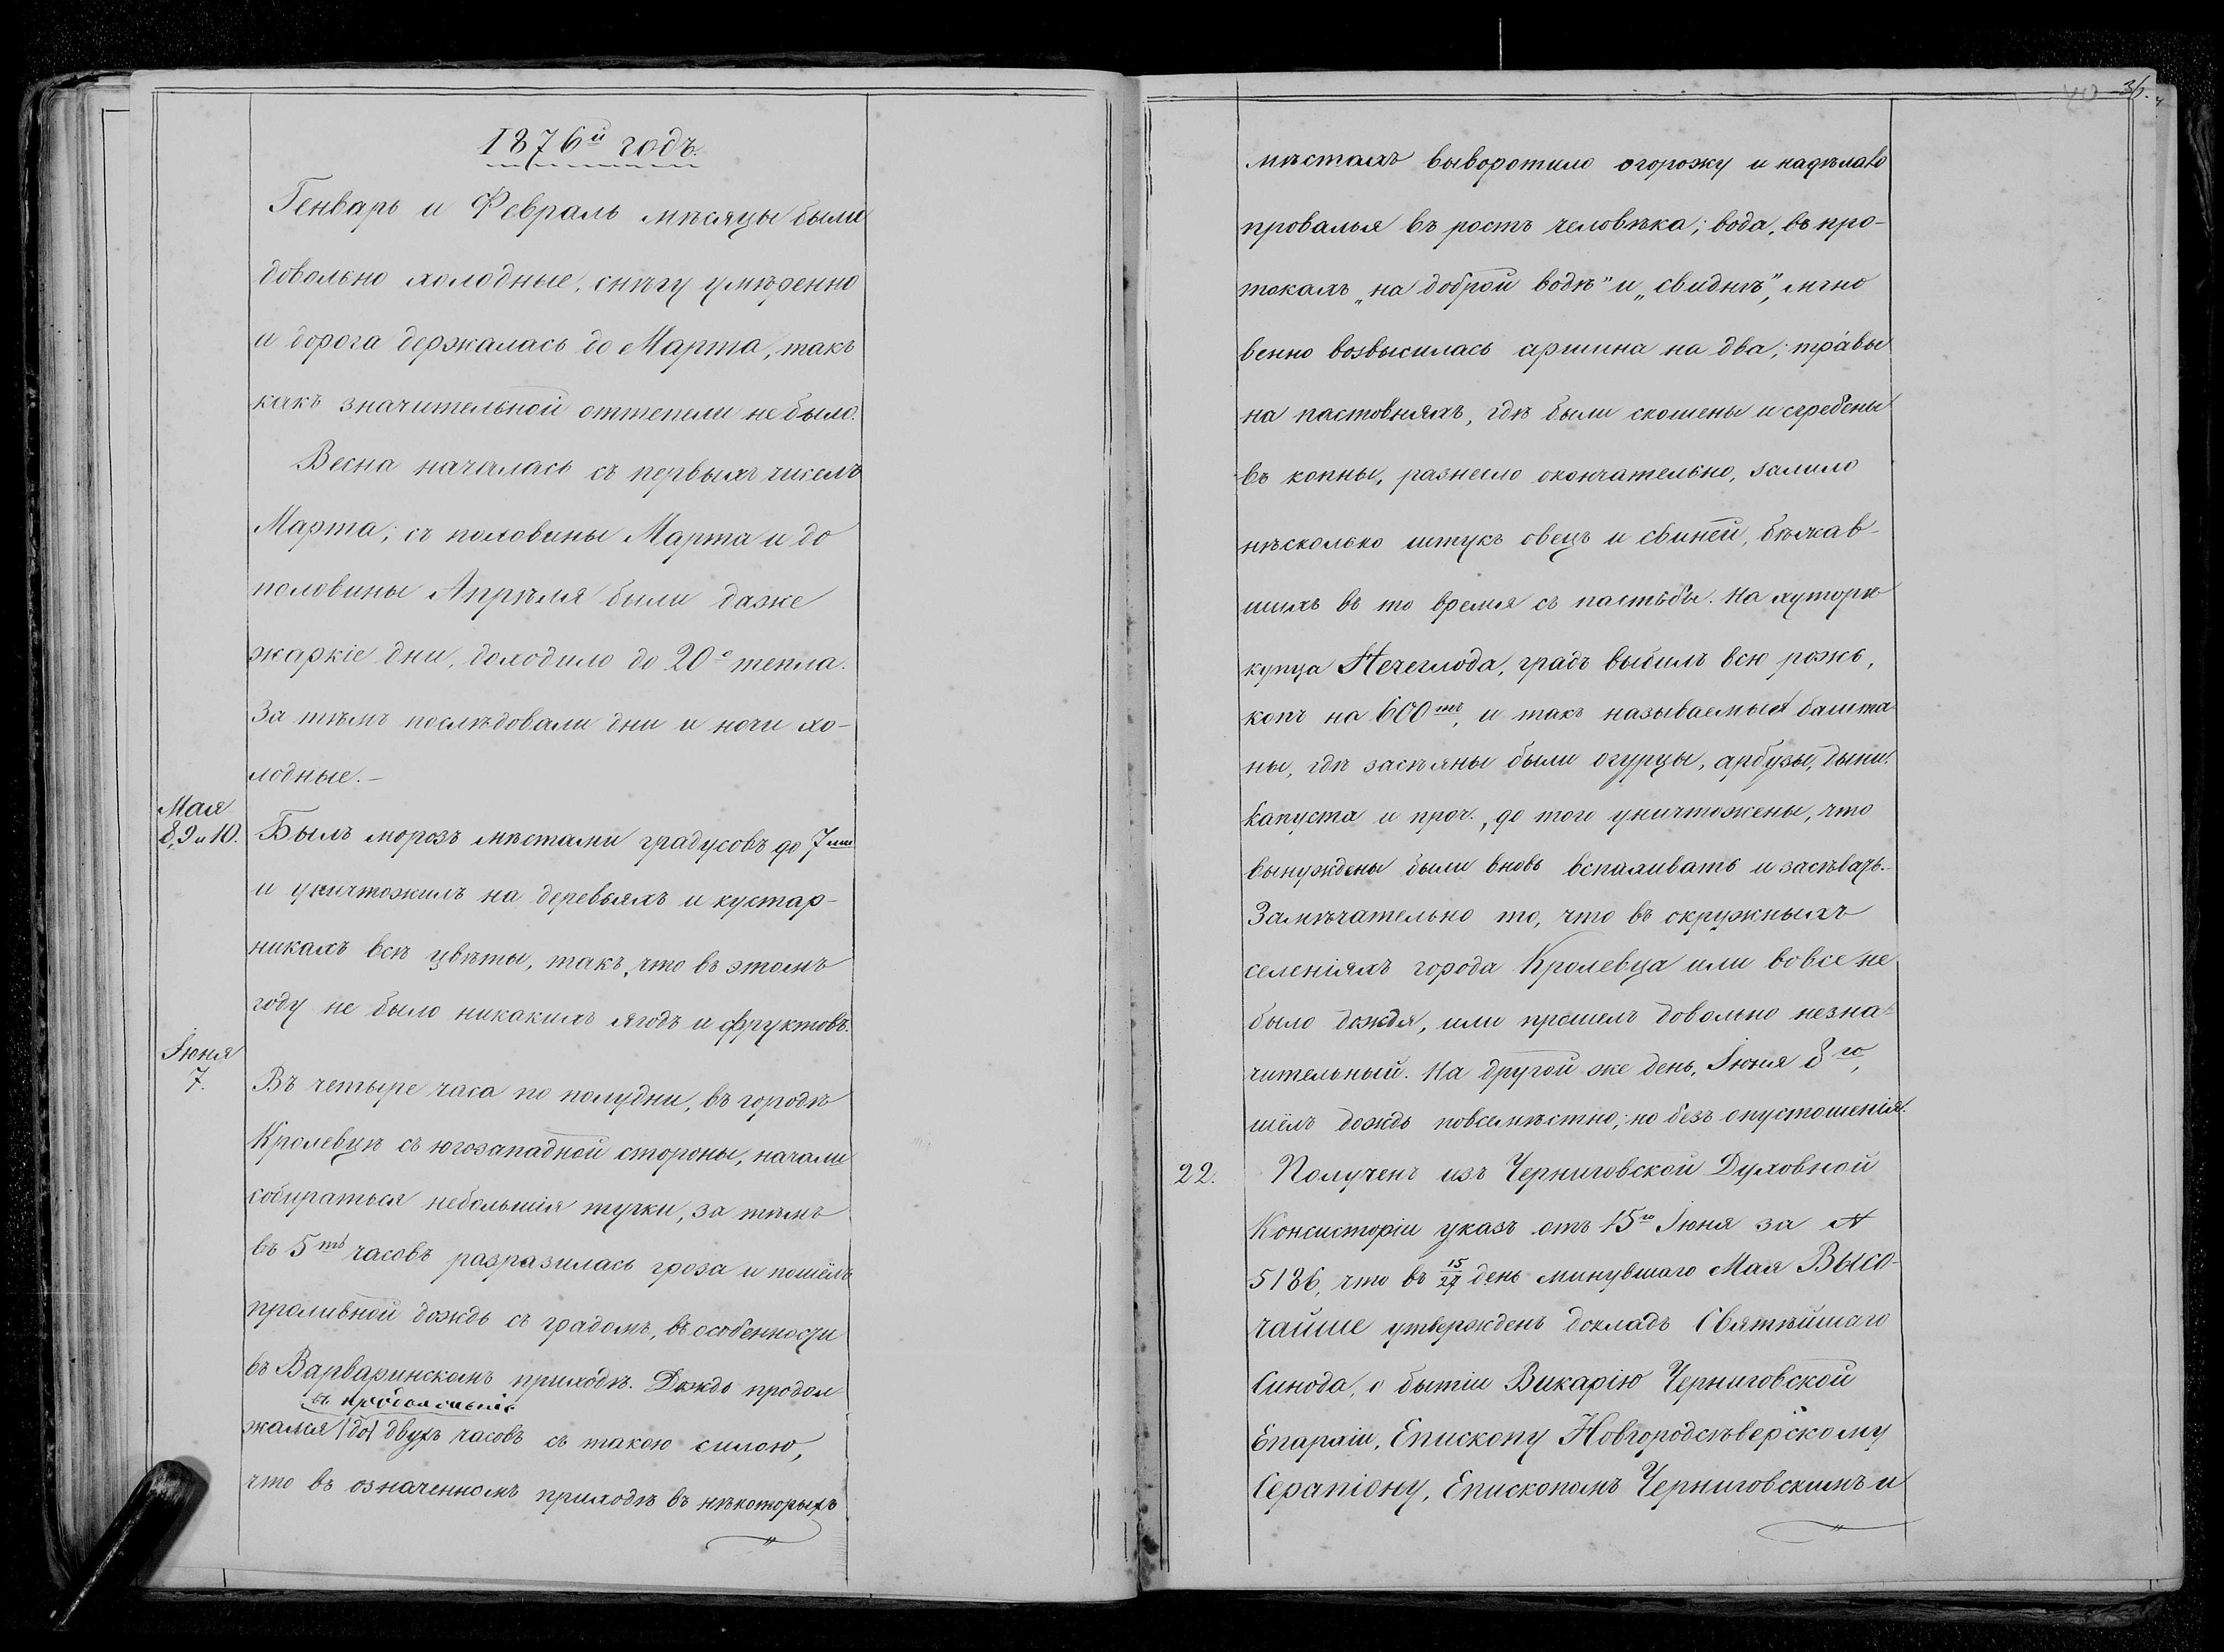 1876й годъ.
Генварь и Февраль мѣсяцы были
довольно холодные, снѣгу умѣренно
и дорога держалась до Марта, такъ
какъ значительной оттепели не было.
Весна началась съ первыхъ чиселъ
Марта; съ половины Марта и до
половины Апрѣля были даже
жаркіе дни, доходило до 20° тепла.
За тѣмъ послѣдовали дни и ночи хо-
лодные.-
Мая
8, 9 и 10.
Былъ морозъ мѣстами градусовъ до 7ми
и уничтожилъ на деревьяхъ и кустар-
никахъ всѣ цвѣты, такъ, что въ этомъ
году не было никакихъ ягодъ и фруктовъ.
Іюня
7.
Въ четыре часа по полудни, въ городѣ
Кролевцѣ съ югозападной стороны, начали
собираться небольшія тучки, за тѣмъ
въ 5ть часовъ разразилась гроза и пошёлъ
проливной дождь съ градомъ, въ особенности
въ Варваринскомъ приходѣ. Дождь продол
въ продолженіе
жался (до) двухъ часовъ съ такою силою,
что въ означенномъ приходѣ въ нѣкоторыхъ
мѣстахъ выворотило огорожу и надѣлало
провалья въ ростъ человѣка; вода, въ про-
токахъ „на доброй водѣ" и „свиднѣ", мгно
венно возвысилась аршина на два; тра́вы
на пастовняхъ, гдѣ были скошены и сгребены
въ копны, разнесло окончательно, залило
нѣсколько штукъ овецъ и свиней, бѣжав-
шихъ въ то время съ пастьбы. На хуторѣ
купца градъ выбилъ всю рожь,
копъ на 600тъ, и такъ называемые башта
ны, гдѣ засѣяны были огурцы, арбузы, дыни,
капуста и проч., до того уничтожены, что
вынуждены были вновь вспахивать и засѣвать.-
Замѣчательно то, что въ окружныхъ
селеніяхъ города Кролевца или вовсе не
было дождя, или прошелъ довольно незна-
чительный. На другой же день, Іюня 8го,
шёлъ дождь повсемѣстно; но безъ опустошенія.
22.
Полученъ изъ Черниговской Духовной
Консисторіи указъ отъ 15го Іюня за №
5186, что въ 15/27 день минувшаго Мая Высо-
чайше утвержденъ докладъ Святѣйшаго
Синода, о бытіи Викарію Черниговской
Епархіи, Епископу Новгородсѣверскому
Серапіону, Епископомъ Черниговскимъ и